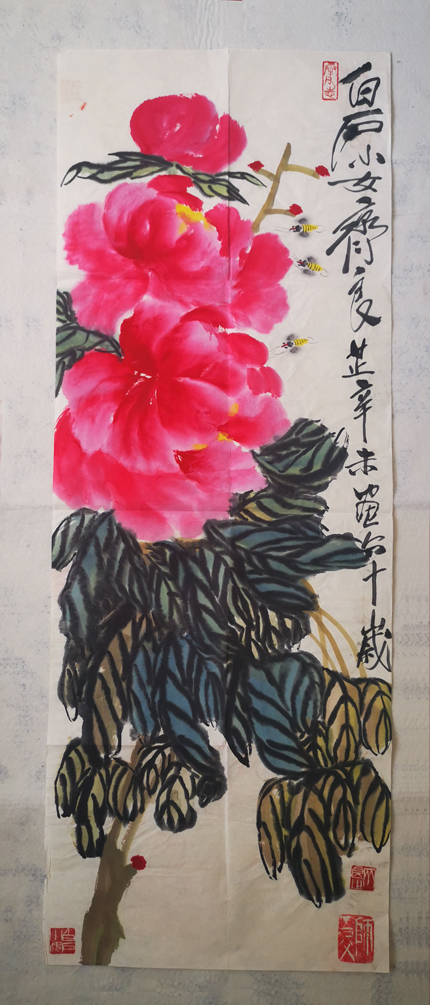 白石小女齊良芷辛未畫六十歲